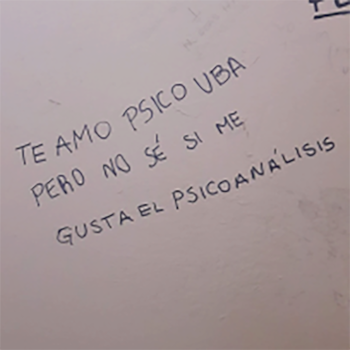 TE AMO PSICO UBA
PERO NO SÉ SI ME
GUSTA EL PSICOANÁLISIS